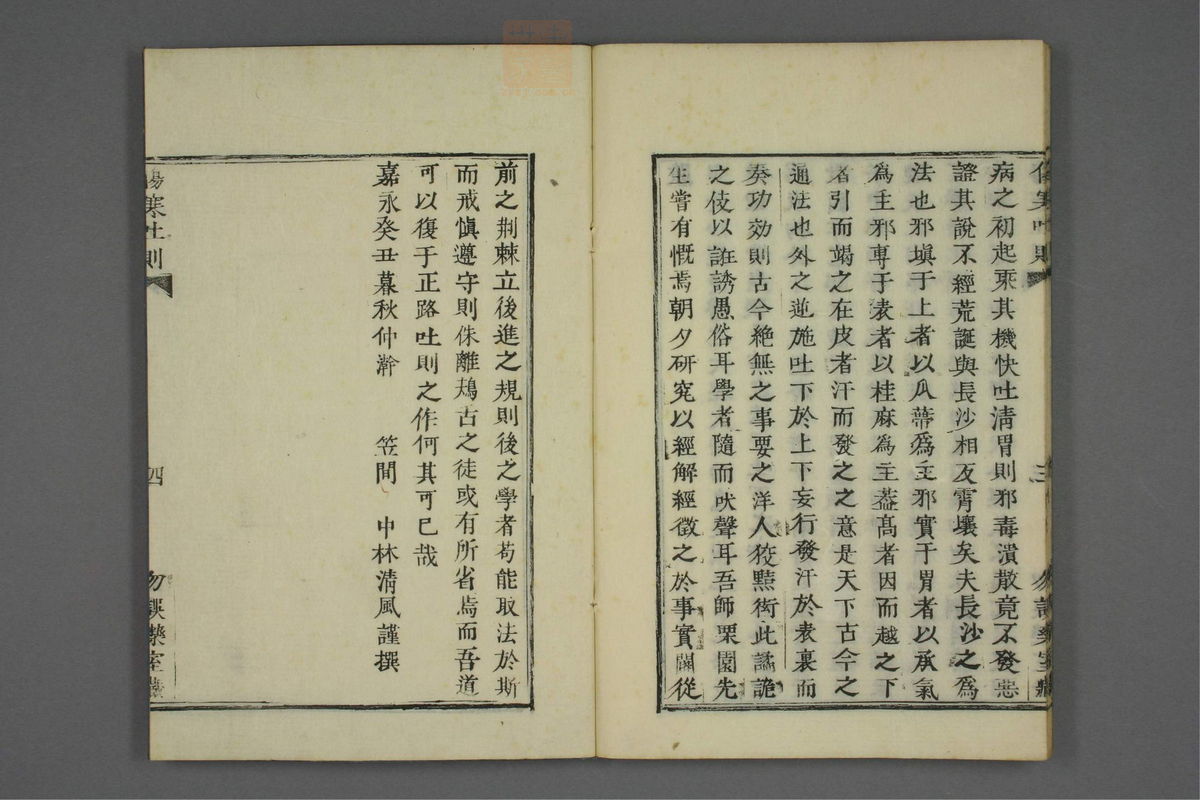 病之初起乘其機快吐淸胃則邪毒潰散竟不發惡
證其說不經荒誕與長沙相反霄壤矣夫長沙之爲
法也邪塡于上者以瓜蒂爲主邪實于胃者以承氣
爲主邪專于表者以桂麻爲主葢高者因而越之下
者引而竭之在皮者汗而發之之意是天下古今之
通法也外之迆施吐下於上下妄行發汗於表裏而
奏功効則古今絶無之事要之洋人狡黠衒此譎詭
之伎以誑誘愚俗耳學者隨而吠聲耳吾師栗園先
生嘗有慨焉朝夕研究以經解經徵之於事實闢從
前之荆棘立後進之規則後之學者苟能取法於斯
而戒愼遵守則侏離鴂古之徒或有所省焉而吾道
可以復于正路吐則之作何其可已哉
嘉永癸丑暮秋仲澣 笠間 中林淸風謹撰
傷寒吐則 三
傷寒吐則 四 勿誤藥室藏